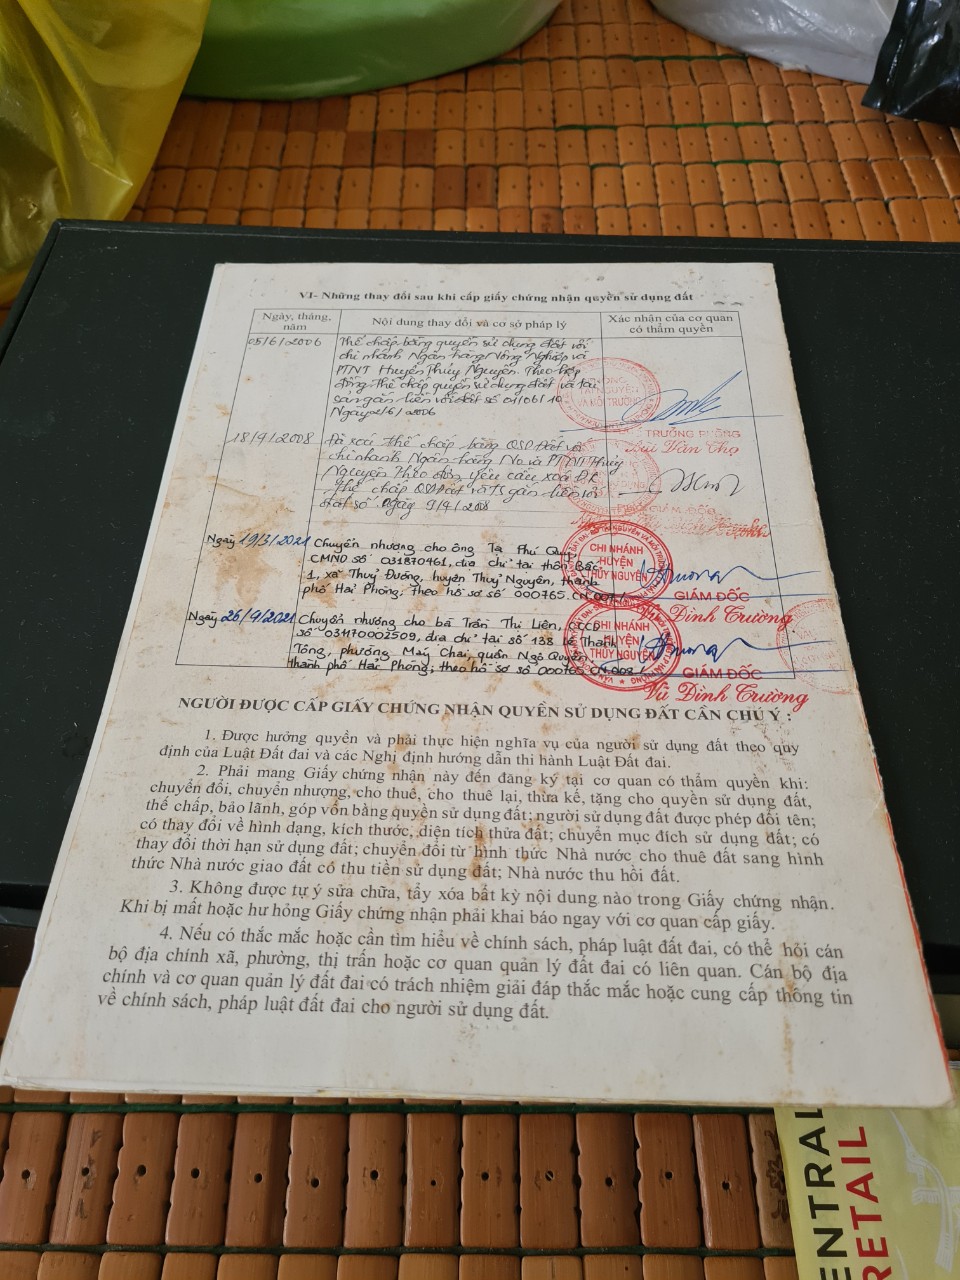 VI- Những thay đổi sau khi cấp giấy chứng nhận quyền sử dụng đất
Ngày, tháng, năm
Nội dung thay đổi và cơ sở pháp lý
Xác nhận của cơ quan có thẩm quyền
05/6/2006
Thế chấp bằng quyền sử dụng đất với
chi nhánh Ngân hàng Nông Nghiệp và
PTNT Huyện Thủy Nguyên. Theo hợp
đồng thế chấp quyền sử dụng đất và tài
sản gắn liền với đất số 01/06/10
Ngày 2/6/2006
TRƯỞNG PHÒNG
Bùi Văn Thọ
18/9/2008
Đã xoá thế chấp bằng QSDĐất với
chi nhánh Ngân hàng No và PTNT Thủy
Nguyên theo đơn yêu cầu xoá ĐK
thế chấp QSDĐất và TS gắn liền với
đất số Ngày 9/9/2008
Ngày 19/3/2021
Chuyển nhượng cho ông Tạ Phú
CMND số 031870461, địa chỉ tại thôn Bấc
1, xã Thuỷ Đường, huyện Thuỷ Nguyên, thành
phố Hải Phòng; theo hồ sơ số 000765.CN.001/
CHI NHÁNH
HUYỆN
THỦY NGUYÊN
GIÁM ĐỐC
Vũ Đình Trường
Ngày 26/9/2021
Chuyển nhượng cho bà Trần Thị Liên, CCCD
số 031170002509, địa chỉ tại số 138 Lê Thánh
Tông, phường Máy Chai, quận Ngô Quyền,
thành phố Hải Phòng; theo hồ sơ số 000765.CN.002/
CHI NHÁNH
HUYỆN
THỦY NGUYÊN
GIÁM ĐỐC
Vũ Đình Trường
NGƯỜI ĐƯỢC CẤP GIẤY CHỨNG NHẬN QUYỀN SỬ DỤNG ĐẤT CẦN CHÚ Ý :
1. Được hưởng quyền và phải thực hiện nghĩa vụ của người sử dụng đất theo quy
định của Luật Đất đai và các Nghị định hướng dẫn thi hành Luật Đất đai.
2. Phải mang Giấy chứng nhận này đến đăng ký tại cơ quan có thẩm quyền khi:
chuyển đổi, chuyển nhượng, cho thuê, cho thuê lại, thừa kế, tặng cho quyền sử dụng đất,
thế chấp, bảo lãnh, góp vốn bằng quyền sử dụng đất; người sử dụng đất được phép đổi tên;
có thay đổi về hình dạng, kích thước, diện tích thửa đất; chuyển mục đích sử dụng đất; có
thay đổi thời hạn sử dụng đất; chuyển đổi từ hình thức Nhà nước cho thuê đất sang hình
thức Nhà nước giao đất có thu tiền sử dụng đất; Nhà nước thu hồi đất.
3. Không được tự ý sửa chữa, tẩy xóa bất kỳ nội dung nào trong Giấy chứng nhận.
Khi bị mất hoặc hư hỏng Giấy chứng nhận phải khai báo ngay với cơ quan cấp giấy.
4. Nếu có thắc mắc hoặc cần tìm hiểu về chính sách, pháp luật đất đai, có thể hỏi cán
bộ địa chính xã, phường, thị trấn hoặc cơ quan quản lý đất đai có liên quan. Cán bộ địa
chính và cơ quan quản lý đất đai có trách nhiệm giải đáp thắc mắc hoặc cung cấp thông tin
về chính sách, pháp luật đất đai cho người sử dụng đất.
ENTRAL
RETAIL